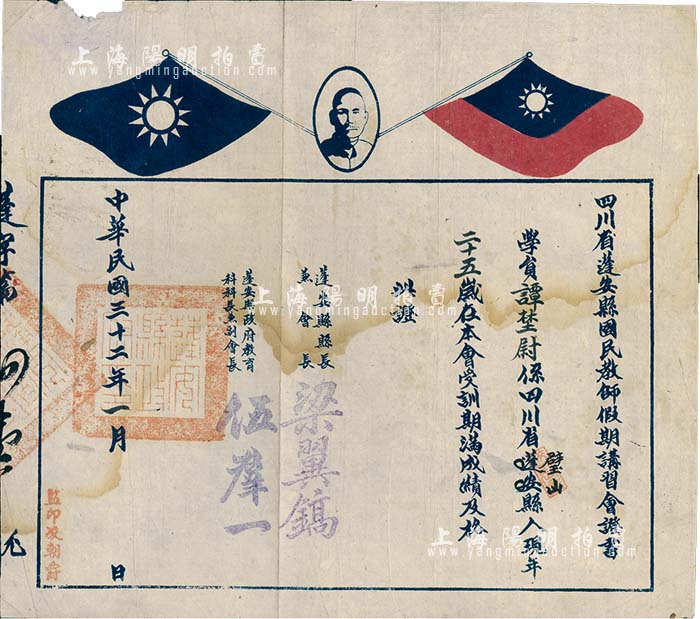 四川省蓬安縣國民教師假期講習會證書
學員譚堃尉係四川省蓬安縣人現年
璧山
二十五歲在本會受訓期滿成績及格
此證
蓬安縣縣長
兼會長
梁翼鎬
蓬安縣政府教育
科科長兼副會長
伍羣一
中華民國三十二年一月
日
上海陽明拍賣
www.yangmingauction.com
上海陽明拍賣
www.yangmingauction.com
上海陽明拍賣
www.yangmingauction.com